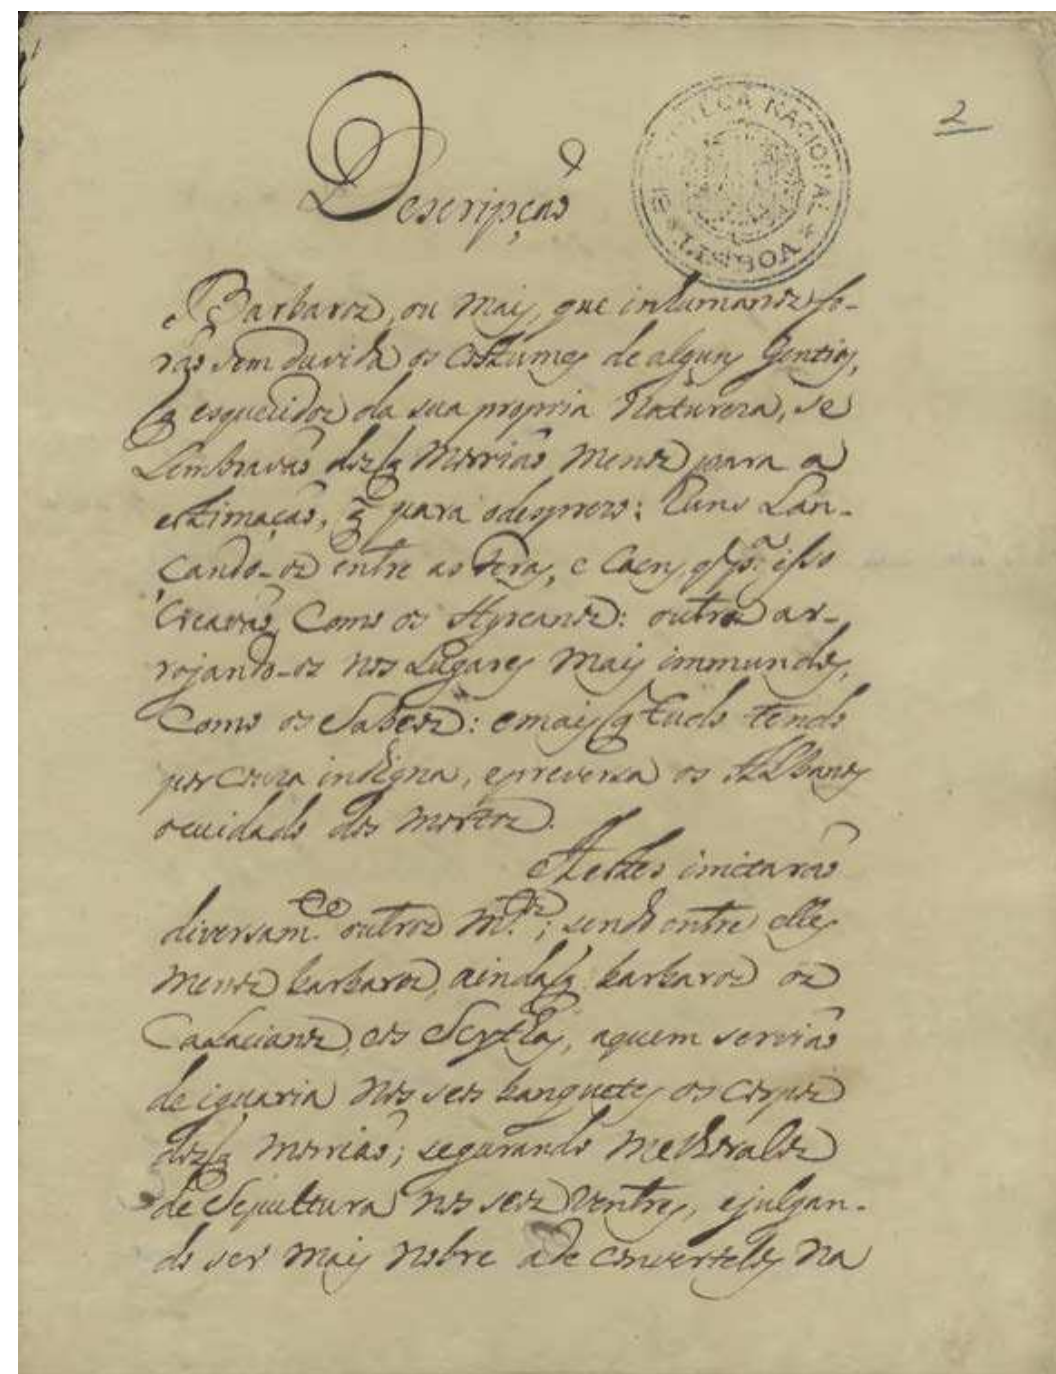 2
BIBLIOTECA NACIONAL
LISBOA
Descripçaõ
Barbaros, ou mais, que inhumanos fo-
raõ sem duvida os costumes de alguns Gentios,
q esquecidos da sua propria Natureza, se
Lembravaõ dos q morriaõ menos para a
estimaçaõ, q̃ para odesprezo: huns Lan-
çando-os entre as feras, e Caens, q̃ pª isso
Creavaõ, Como os Hyrcanos: outros ar-
rojando-os nos Lugares mais immundos,
Como os Sabeos: emais q tudo tendo
por Couza indigna, epreversa os Albanos
ocuidado dos mortos.
Aestes imitaraõ
diversam.te outros m.tos; sendo entre elles
menos barbaros, ainda q barbaros os
Calacianos, eos Scythas, aquem serviaõ
de iguaria nos seos banquetes os Corpos
dos q morriaõ; segurando melhoralos
de Sepultura nos seos Ventres, ejulgan-
do ser mais nobre ade Convertelos na